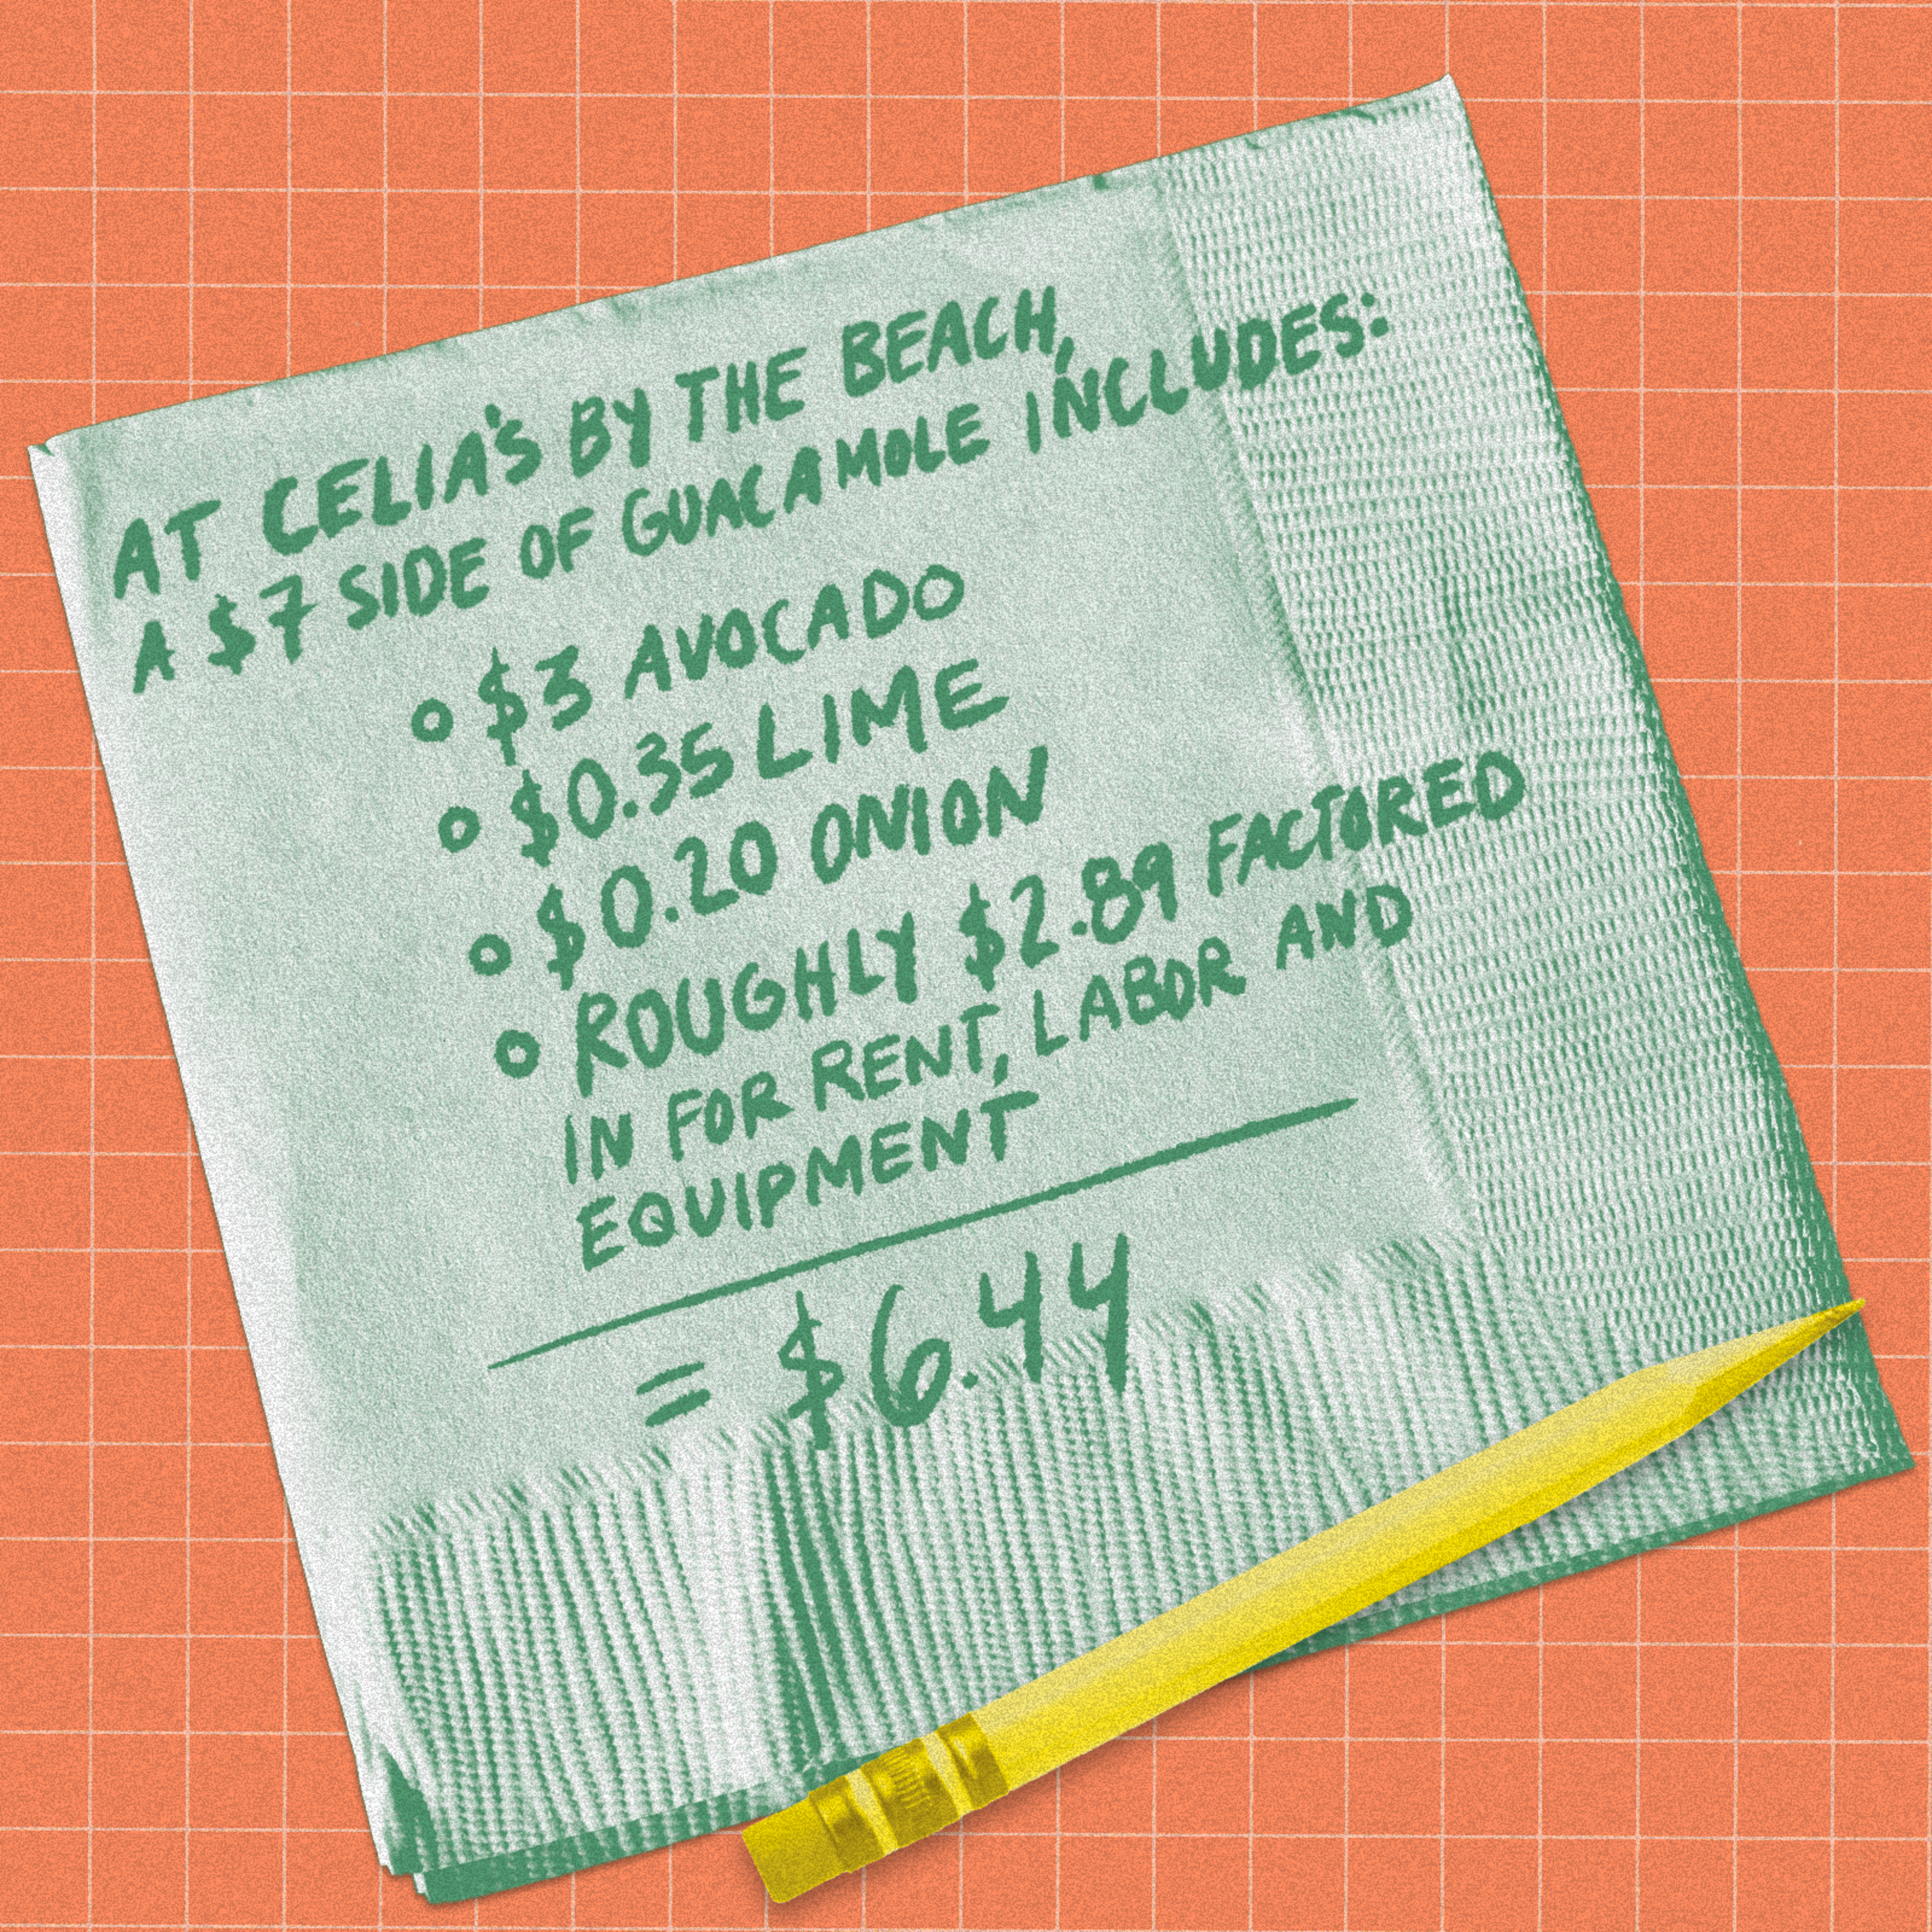 AT CELIA'S BY THE BEACH,
A $7 SIDE OF GUACAMOLE INCLUDES:
o $3 AVOCADO
o $0.35 LIME
o $0.20 ONION
o ROUGHLY $2.89 FACTORED
IN FOR RENT, LABOR AND
EQUIPMENT
= $6.44